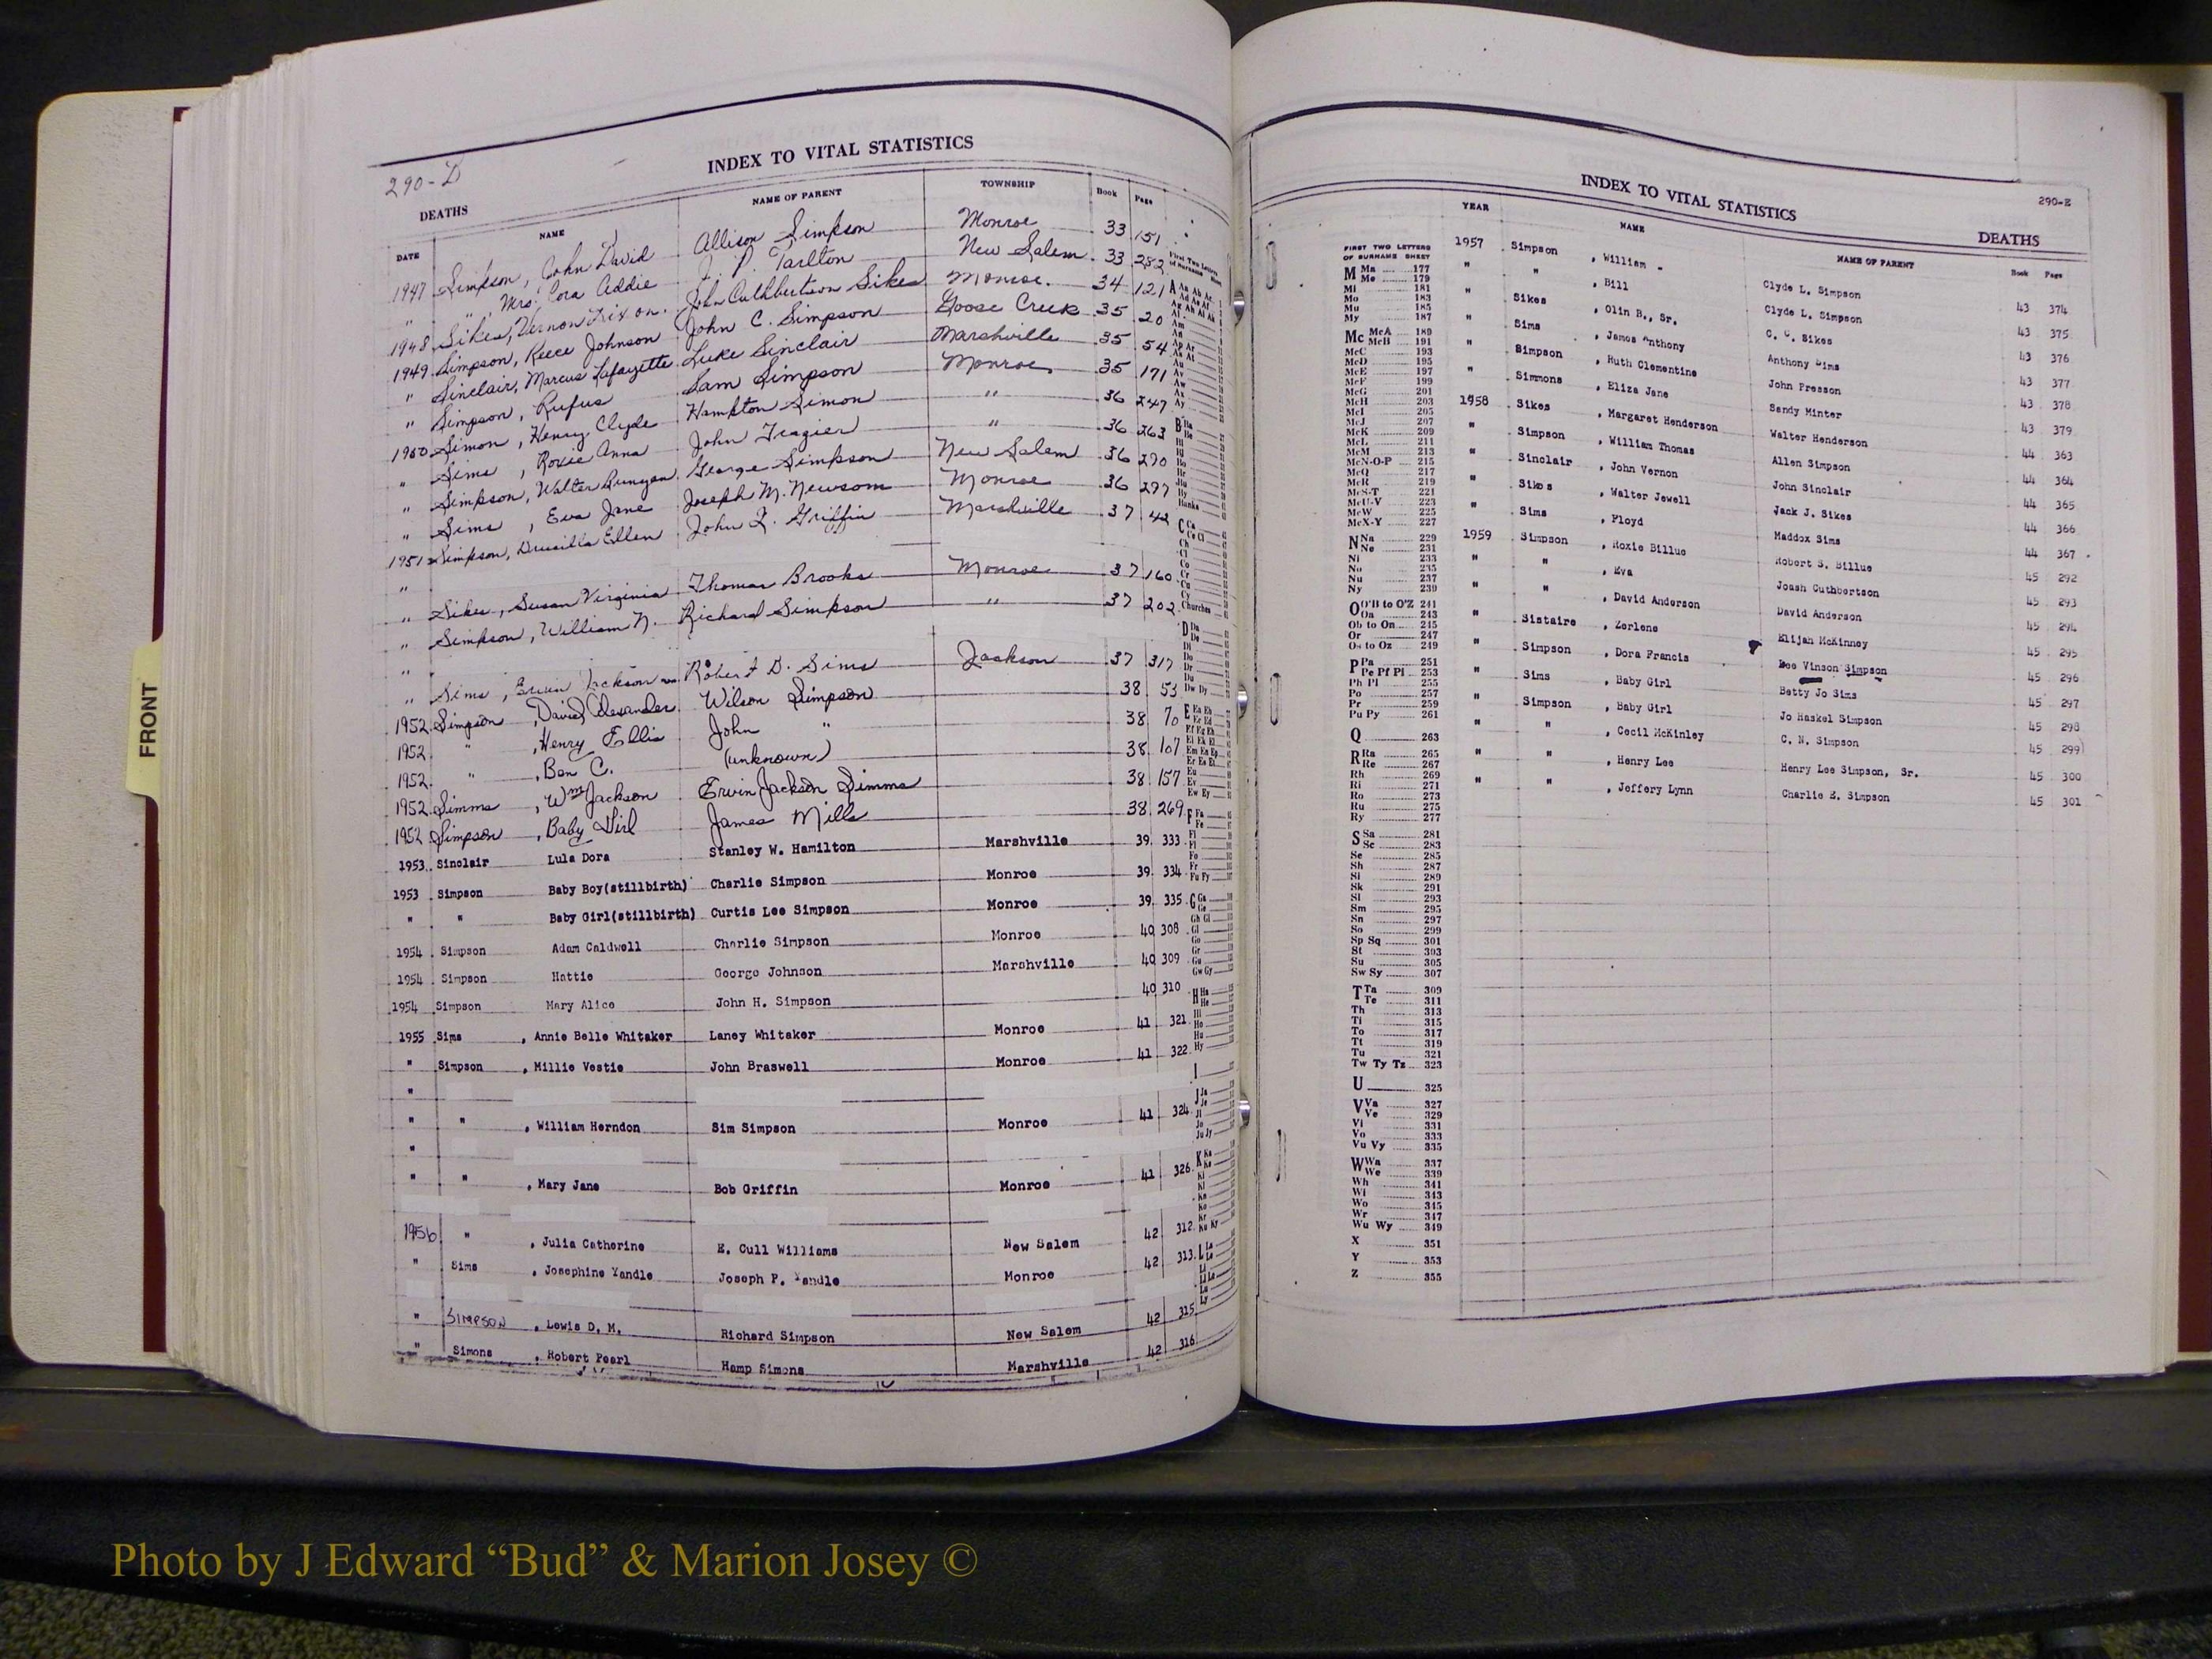 290-D
INDEX TO VITAL STATISTICS
DEATHS
DATE NAME NAME OF PARENT TOWNSHIP Book Page
1947 Simpson, John David Allison Simpson Monroe 33 151
" ", Mrs. Cora Addie J. P. Tarlton New Salem 33 282
1948 Sikes, Vernon Dixon John Cuthbertson Sikes Monroe 34 121
1949 Simpson, Reece Johnson John C. Simpson Goose Creek 35 20
" Sinclair, Marcus Lafayette Luke Sinclair Marshville 35 54
" Simpson, Rufus Sam Simpson Monroe 35 171
1950 Simon, Henry Clyde Hampton Simon " 36 247
" Sims, Roxie Anna John Frazier " 36 263
" Simpson, Walter Runyon George Simpson New Salem 36 270
" Sims, Eva Jane Joseph M. Newsom Monroe 36 297
1951 Simpson, Drusilla Ellen John L. Griffin Marshville 37 42
"
" Sikes, Susan Virginia Thomas Brooks Monroe 37 160
" Simpson, William N. Richard Simpson " 37 202
"
" Sims, Ervin Jackson Robert D. Sims Jackson 37 317
1952 Simpson, David Alexander Wilson Simpson 38 53
1952 ", Henry Ellis John " 38 70
1952 ", Ben C. (unknown) 38 107
1952 Simms, Wm Jackson Ervin Jackson Simms 38 157
1952 Simpson, Baby Girl James Mills 38 269
1953 Sinclair Lula Dora Stanley W. Hamilton Marshville 39 333
1953 Simpson Baby Boy(stillbirth) Charlie Simpson Monroe 39 334
" " Baby Girl(stillbirth) Curtis Lee Simpson Monroe 39 335
1954 Simpson Adam Caldwell Charlie Simpson Monroe 40 308
1954 Simpson Hattie George Johnson Marshville 40 309
1954 Simpson Mary Alice John H. Simpson 40 310
1955 Sims , Annie Belle Whitaker Laney Whitaker Monroe 41 321
" Simpson , Millie Vestie John Braswell Monroe 41 322
"
" " , William Herndon Sim Simpson Monroe 41 324
"
" " , Mary Jane Bob Griffin Monroe 41 326
1956 " , Julia Catherine E. Cull Williams New Salem 42 312
" Sims , Josephine Yandle Joseph P. Yandle Monroe 42 313
" SIMPSON , Lewis D. M. Richard Simpson New Salem 42 315
" Simons , Robert Pearl Hamp Simons Marshville 42 316
FRONT
INDEX TO VITAL STATISTICS
290-E
DEATHS
YEAR NAME NAME OF PARENT Book Page
1957 Simpson , William Clyde L. Simpson 43 374
" " , Bill Clyde L. Simpson 43 375
" Sikes , Olin B., Sr. C. C. Sikes 43 376
" Sims , James Anthony Anthony Sims 43 377
" Simpson , Ruth Clementine John Presson 43 378
" Simmons , Eliza Jane Sandy Minter 43 379
1958 Sikes , Margaret Henderson Walter Henderson 44 363
" Simpson , William Thomas Allen Simpson 44 364
" Sinclair , John Vernon John Sinclair 44 365
" Sikes , Walter Jewell Jack J. Sikes 44 366
" Sims , Floyd Maddox Sims 44 367
1959 Simpson , Roxie Billue Robert S. Billue 45 292
" " , Eva Joash Cuthbertson 45 293
" " , David Anderson David Anderson 45 294
" Sistaire , Zerlene Elijah McKinney 45 295
" Simpson , Dora Francis Dee Vinson Simpson 45 296
" Sims , Baby Girl Betty Jo Sims 45 297
" Simpson , Baby Girl Jo Haskel Simpson 45 298
" " , Cecil McKinley C. N. Simpson 45 299
" " , Henry Lee Henry Lee Simpson, Sr. 45 300
" " , Jeffery Lynn Charlie E. Simpson 45 301
FIRST TWO LETTERS
OF SURNAME SHEET
M Ma 177
Me 179
Mi 181
Mo 183
Mu 185
My 187
Mc McA 189
McB 191
McC 193
McD 195
McE 197
McF 199
McG 201
McH 203
McI 205
McJ 207
McK 209
McL 211
McM 213
McN-O-P 215
McQ 217
McR 219
McS-T 221
McU-V 223
McW 225
McX-Y 227
N Na 229
Ne 231
Ni 233
No 235
Nu 237
Ny 239
O O'B to O'Z 241
Oa 243
Ob to On 245
Or 247
Os to Oz 249
P Pa 251
Pe Pf Pl 253
Ph Pi 255
Po 257
Pr 259
Pu Py 261
Q 263
R Ra 265
Re 267
Rh 269
Ri 271
Ro 273
Ru 275
Ry 277
S Sa 281
Sc 283
Se 285
Sh 287
Si 289
Sk 291
Sl 293
Sm 295
Sn 297
So 299
Sp Sq 301
St 303
Su 305
Sw Sy 307
T Ta 309
Te 311
Th 313
Ti 315
To 317
Tt 319
Tu 321
Tw Ty Tz 323
U 325
V Va 327
Ve 329
Vi 331
Vo 333
Vu Vy 335
W Wa 337
We 339
Wh 341
Wi 343
Wo 345
Wr 347
Wu Wy 349
X 351
Y 353
Z 355
Photo by J Edward “Bud” & Marion Josey ©